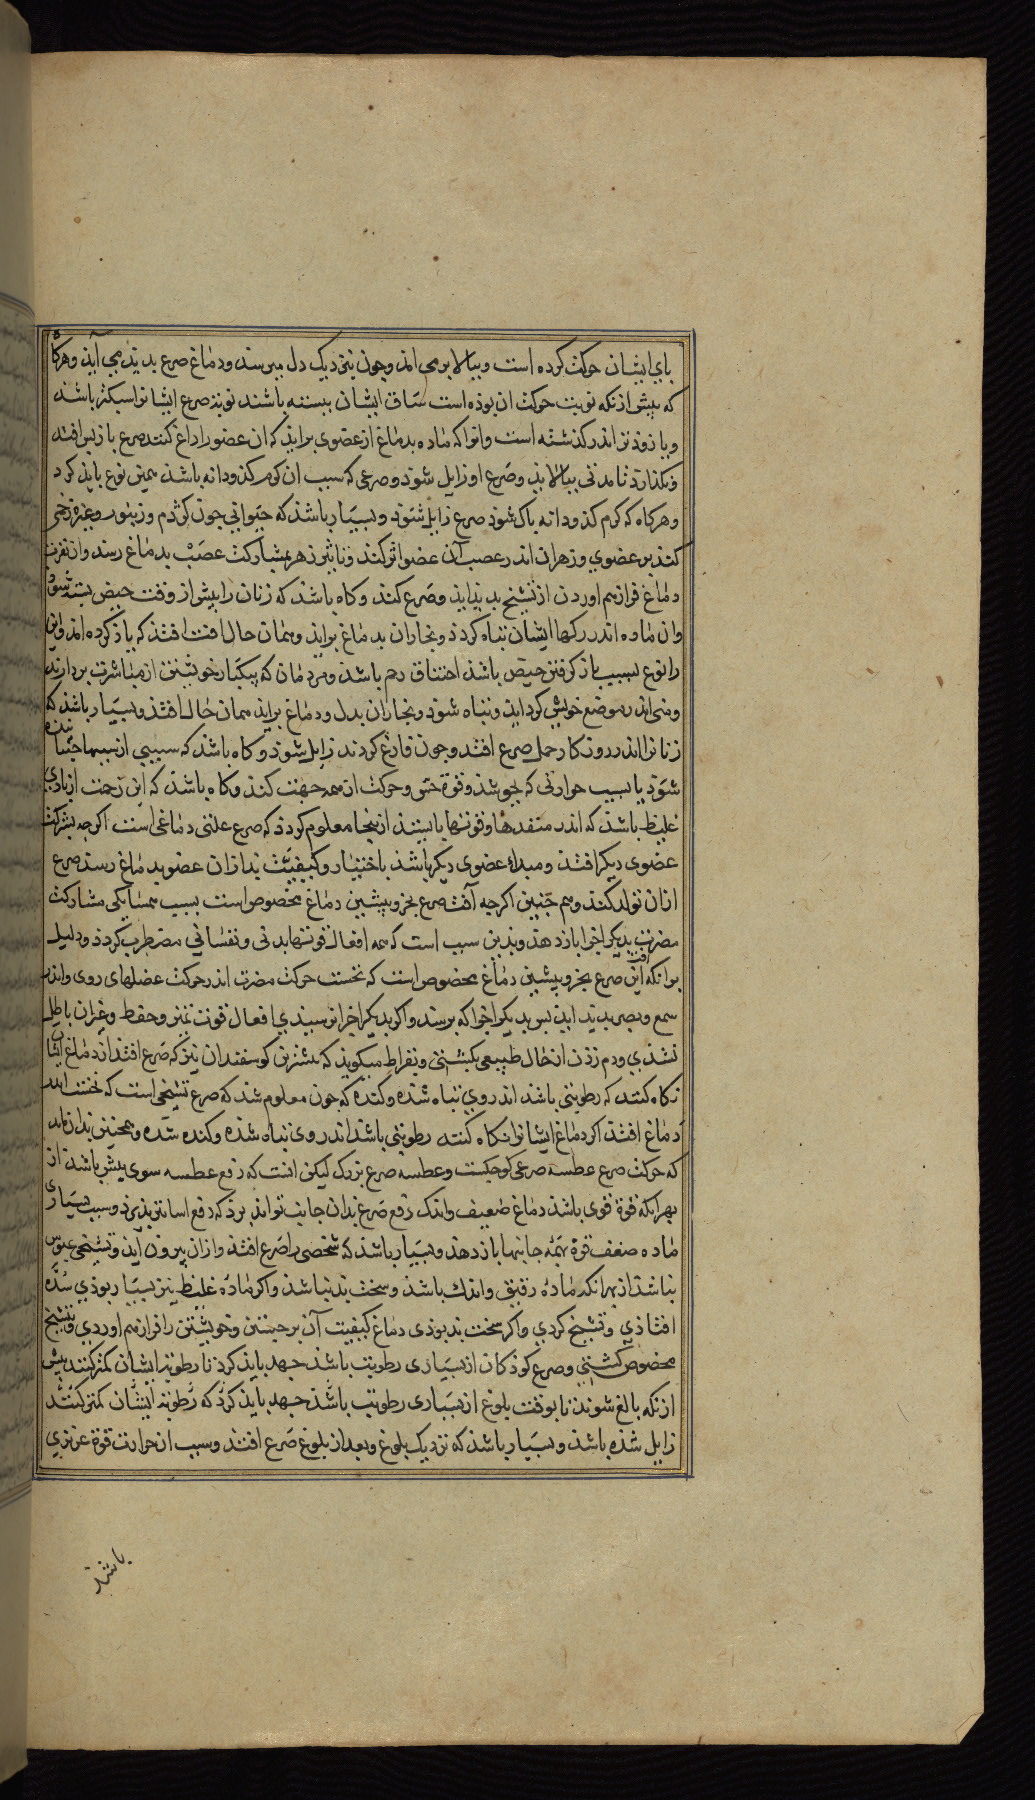 پای ایشان حرکت کرده است و ببالا برمی اید و چون بنزدیک دل میرسد و دماغ صرع بدید می آید و هرکاه
که پیش ازنکه نوبت حرکت ان بوذه است ساق ایشان ببسته باشند نوبة صرع ایشانرا سبکتر باشد
و یا زوذتر اندر کذشته است وانرا که ماده بدماغ از عضوی برایذ که ان عضو را داغ کنند صرع بازپس افتد
و نکذارذ تا مدتی ببالا یذ و صرع او زایل شوذ و صرعی که سبب ان کرم کذودانه باشذ همین نوع بایذ کرد
و هرکاه که کرم کذودانه پاک شوذ صرع زایل شوذ و بسیار باشذ که حیوانی چون کژدم و زنبور و غیره زخمی
کند بر عضوی و زهر ان اندر عصب آن عضو اثر کند و تاثیر زهر بمشارکت عصب بدماغ رسد و از نفرت
دماغ فرازهم اوردن از تشنج بدیذ ایذ و صرع کند و کاه باشذ که زنان را پیش از وقت حیض بسته شوذ
وان ماده اندر رکها ایشان تباه کردذ و بخار ان بدماغ برایذ و همان حال افت افتذ که یاذ کرده اند و این
را نوع بسبب باز کرفتن حیض باشذ اختناق رحم باشذ و مردمان که بیکبار خویشتن از مباشرت بردارند
و منی اندر موضع خویش کرد ایذ و تباه شوذ و بخار ان بدل و دماغ برایذ همان حال افتذ و بسیار باشذ که
زنانرا اندر روزکار حمل صرع افتد و چون فارغ کردند زایل شوذ و کاه باشذ که سببی از سببها جنبانیده
شوذ یا بسبب حرارتی که بجوشذ و قوة حس و حرکت از همه جهت کند و کاه باشذ که این زحمت از باذی
غلیظ باشذ که اندر منفذها و قوتها بایستذ از ینجا معلوم کردذ که صرع علتی دماغی است اکرچه بشرکت
عضوی دیکر افتد و مبداء عضوی دیکر باشذ یا ختیار و کیفیت بذ ازان عضو بدماغ رسد صرع
ازان تولد کند و هم چنین اکرچه آفت صرع بجزو پیشین دماغ مخصوص است بسبب همسایکی مشارکت
مضرت بدیکر اجزا باز دهذ و بذین سبب است که همه افعال قوتها بدنی و نفسانی مضطرب کردذ و دلیل
برانکه آفت این صرع بجزو پیشین دماغ مخصوص است که نخست حرکت مضرت اندر حرکت عضلهای روی واندر
سمع و بصر بدید ایذ پس بدیکر اجزا که برسد و اکر بدیکر اجزا نرسیذی افعال قوت تمیز و حفظ و غیر ان باطل
نشذی و دم زدن از حال طبیعی بکشتی و بقراط میکوید که بیشترین کوسفندان نیز که صرع افتذ اندر دماغ ایشان
نکاه کنند که رطوبتی باشذ اندروی تباه شده و کنده که چون معلوم شد که صرع تشنجی است که نخست اندر
دماغ افتذ اکر دماغ ایشانرا نکاه کنند رطوبتی باشذ اندروی تباه شذه و کنده شده و همچنین بذانند
که حرکت صرع عطسه صرعی کوچکست و عطسه صرع بزرک لیکن انست که دفع عطسه سوی پیش باشذ از
بهر انکه قوة قوی باشذ دماغ ضعیف واندک دفع صرع بذان جانب تواند بوذ که دفع اسانتر پذیرذ و سبب بسیاری
ماده ضعف قوة بهمه جانبها باز دهذ و بسیار باشذ که شخصی را صرع افتذ و ازان بیرون آیذ و تشنجی عبوس
نباشذ از بهر انکه ماده رقیق واندک باشذ و سخت بذ نباشذ و اکر ماده غلیظ نیز بسیار بوذی سده
افتاذی و تشنج کردی و اکر سخت بذ بوذی دماغ کیفیت آن برحستی و خویشتن را فرازهم اوردی و تشنج
مخصوص کشتی و صرع کوذکان از بسیاری رطوبت باشذ جهد بایذ کرد تا رطوبة ایشان کمتر کنند پیش
ازنکه بالغ شوند تا بوقت بلوغ از بسیاری رطوبت باشذ جهد بایذ کرد که رطوبة ایشان کمتر کنند
زایل شذه باشذ و بسیار باشذ که نزدیک بلوغ و بعد از بلوغ صرع افتذ و سبب ان حرارت قوة عزیزی
باشذ